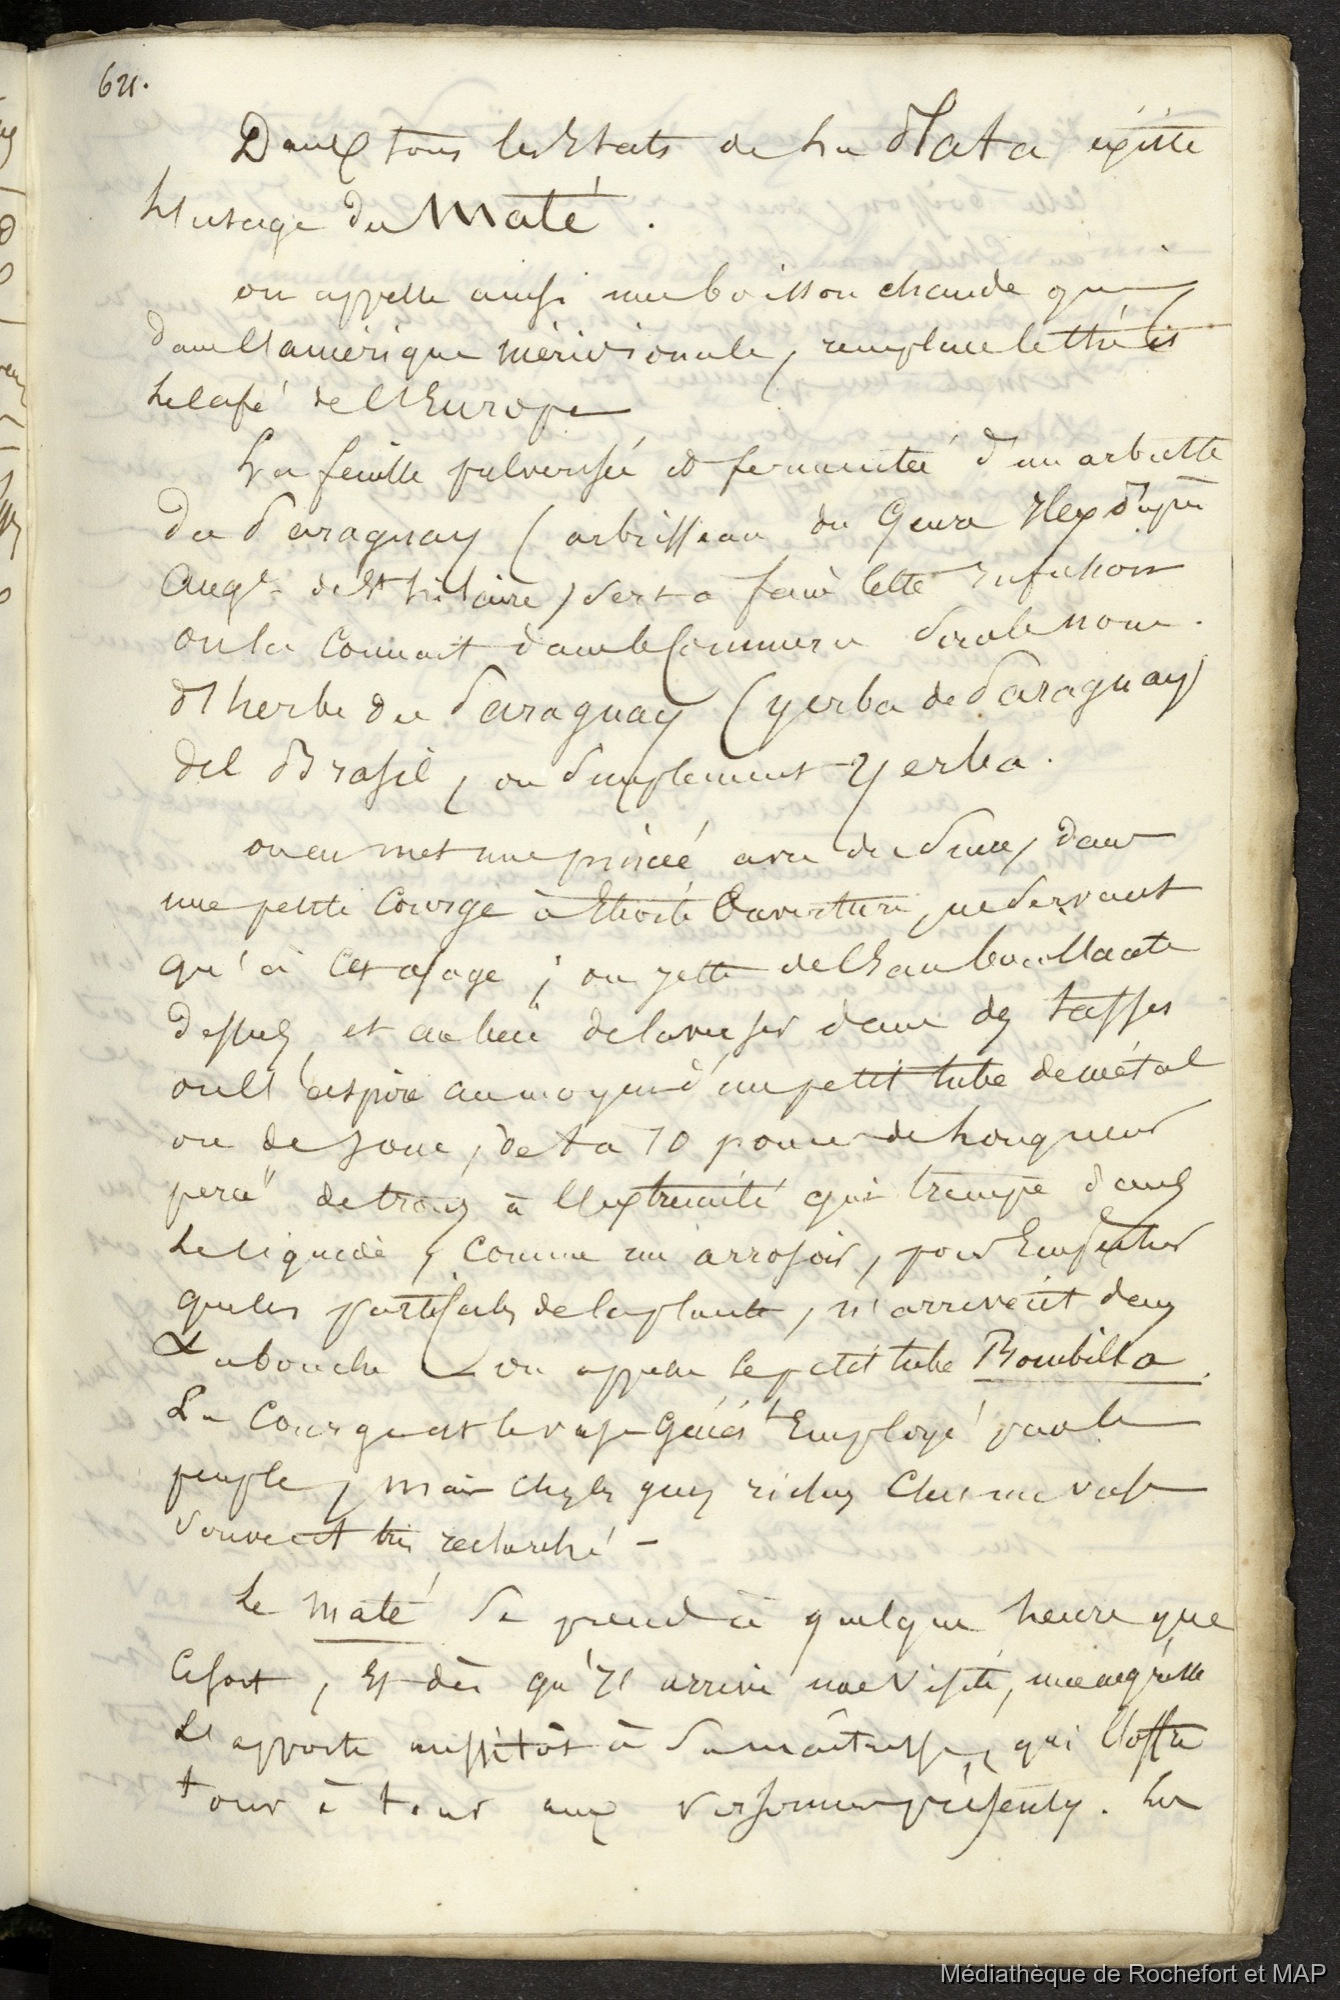 621.
Dans tous les Etats de La Plata existe
L'usage du Maté.
on appelle ainsi une boisson chaude qui
dans l'amérique méridionale, remplace le thé et
le café de l'Europe
La feuille pulverisée et fermentée d'un arbuste
du Paraguay (arbrisseau du Genre Ilex d'après
Augte de St hilaire) sert a faire cette Infusion
on la connait dans le Commerce sous le nom
d'herbe du Paraguay (yerba de Paraguay)
del Brasil, ou simplement Yerba.
on en met une pincée avec du sucre, dans
une petite Courge à Etroite Ouverture, ne servant
qu'à cet usage; on jette de l'Eau bouillante
dessus, et au lieu de la verser dans des tasses
on l'aspire au moyen d'un petit tube de métal
ou de jonc, de à 10 pouces de longueur
percé de trous à l'extremité qui trempe dans
Le liquide, comme un arrosoir, pour Empecher
que les particules de la plante, n'arrivent dans
La bouche on appelle ce petit tube Bombilla.
La Courge est le vase Génért Employé par le
peuple, mais chez les gens riches C'est un vase
souvent très recherché -
Le maté se prend à quelque heure que
ce soit, Et dès qu'Il arrive une visite, une négresse
L'apporte aussitôt à sa maîtresse, qui l'offre
tour à tour aux personnes présentes. La
Médiathèque de Rochefort et MAP